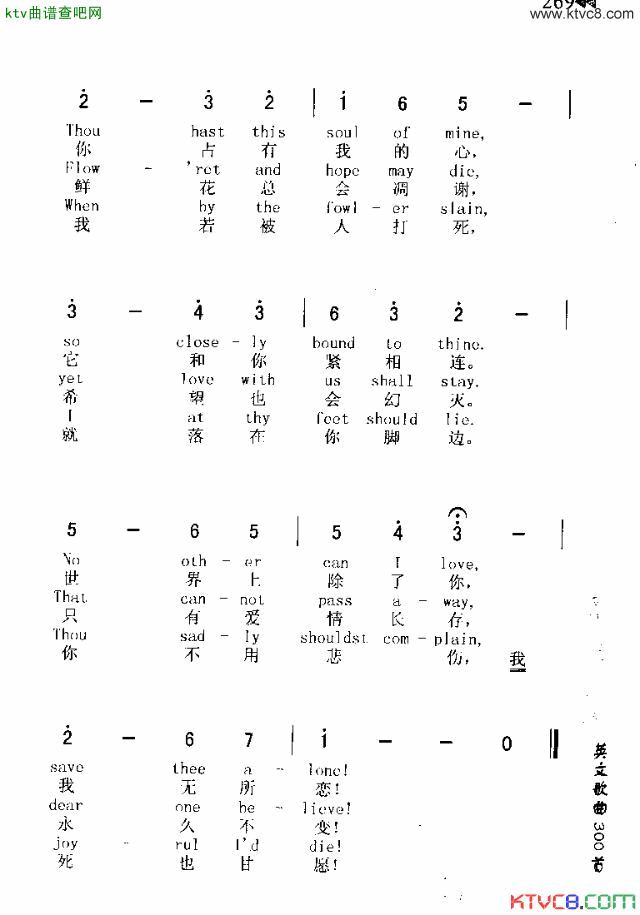 ktv曲谱查吧网
269
www.ktvc8.com
2 - 3 2 | 1 6 5 - |
Thou hast this soul of mine,
你 占 有 我 的 心,
Flow - 'ret and hope may die,
鲜 花 总 会 凋 谢,
When by the fowl - er slain,
我 若 被 人 打 死,
3 - 4 3 | 6 3 2 - |
so close - ly bound to thine.
它 和 你 紧 相 连。
yet love with us shall stay.
希 望 也 会 幻 灭。
I at thy feet should lie.
就 落 在 你 脚 边。
5 - 6 5 | 5 4 3 - |
No oth - er can I love,
世 界 上 除 了 你,
That can - not pass a - way,
只 有 爱 情 长 存,
Thou sad - ly shouldst com - plain,
你 不 用 悲 伤, 我
2 - 6 7 | 1 - - 0 ‖
save thee a - lone!
我 无 所 恋!
dear one be - lieve!
永 久 不 变!
joy - rul I'd die!
死 也 甘 愿!
英文歌曲300首
KTVC8.COM